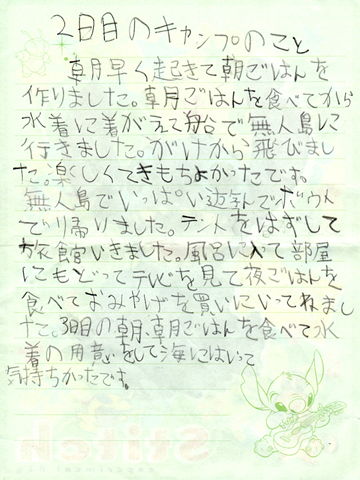 2日目のキャンプのこと
朝早く起きて朝ごはんを
作りました。朝ごはんを食べてから
水着に着がえて船で無人島に
行きました。がけから飛びまし
た。楽しくてきもちよかたです。
無人島でいっぱい遊んでボウト
でり帰りました。テントをはずして
旅館いきました。風呂に入って部屋
にもどってテレビを見て夜ごはんを
食べておみやげを買いにいってねまし
た。3日目の朝、朝ごはんを食べて水
着の用意をして海にはいって
気持ちかったです。
Stitch